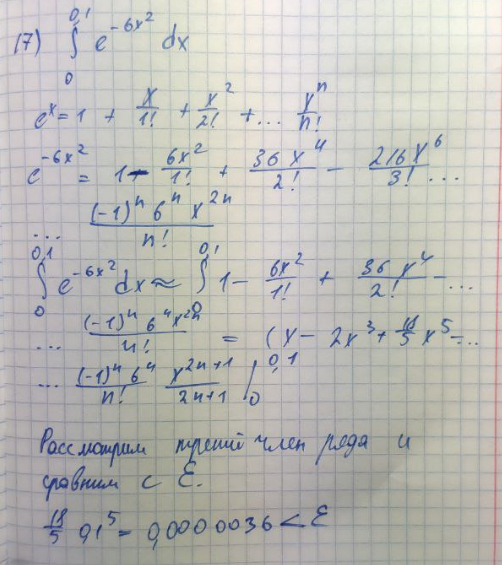 17) ∫₀^0,1 e^{-6x²} dx
e^x = 1 + x/1! + x²/2! + ... x^n/n!
e^{-6x²} = 1 - 6x²/1! + 36x⁴/2! - 216x⁶/3! ...
... (-1)^n 6^n x^{2n}/n!
∫₀^0,1 e^{-6x²} dx ≈ ∫₀^0,1 1 - 6x²/1! + 36x⁴/2! - ...
... (-1)^n 6^n x^{2n}/n! = (x - 2x³ + 18/5 x⁵ - ...
... (-1)^n 6^n/n! x^{2n+1}/2n+1 |₀^0,1
Рассмотрим третий член ряда и
сравним с Ɛ.
18/5 0,1⁵ = 0,0000036 < Ɛ